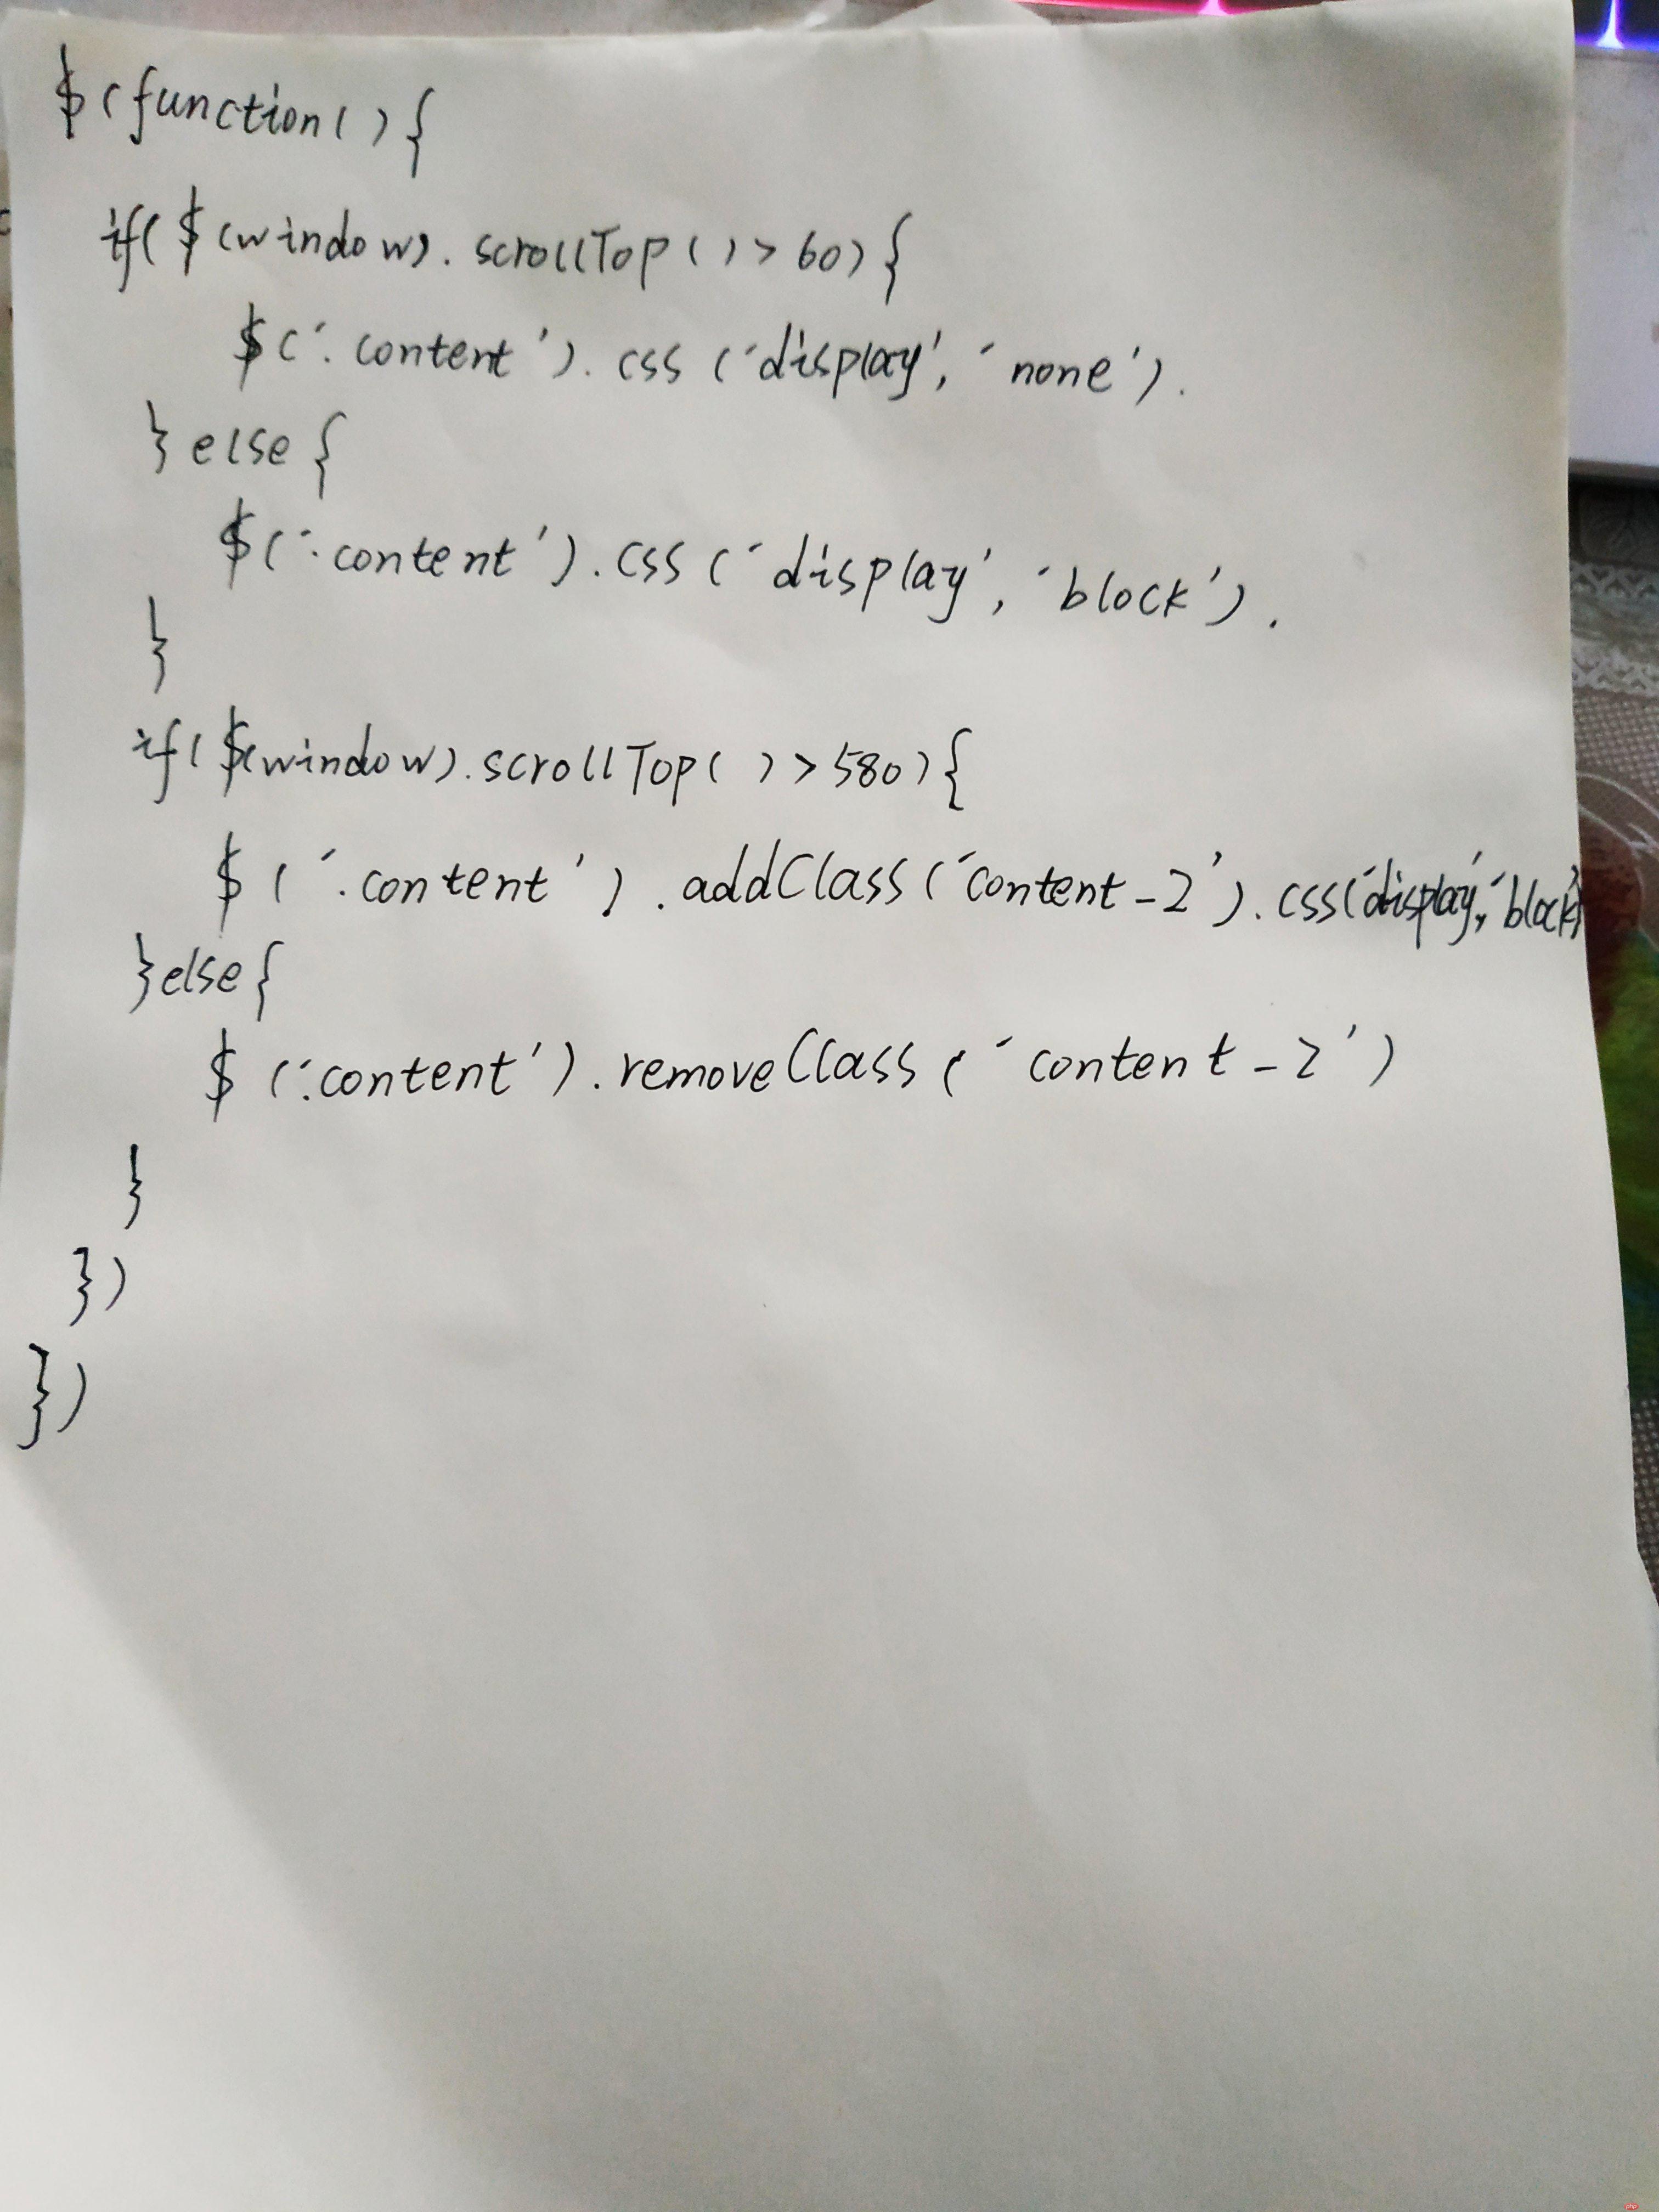 $(function(){
if($(window).scrollTop()>60){
$('.content').css('display','none').
}else{
$('.content').css('display','block').
}
if($(window).scrollTop()>580){
$('.content').addClass('content-2').css('display','block')
}else{
$('.content').removeClass('content-2')
}
})
})
php